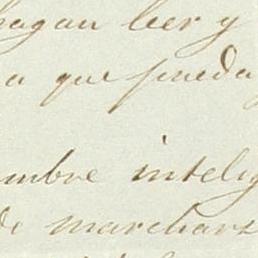 hagan leer y
a que pueda
mbre intelig
de marchars